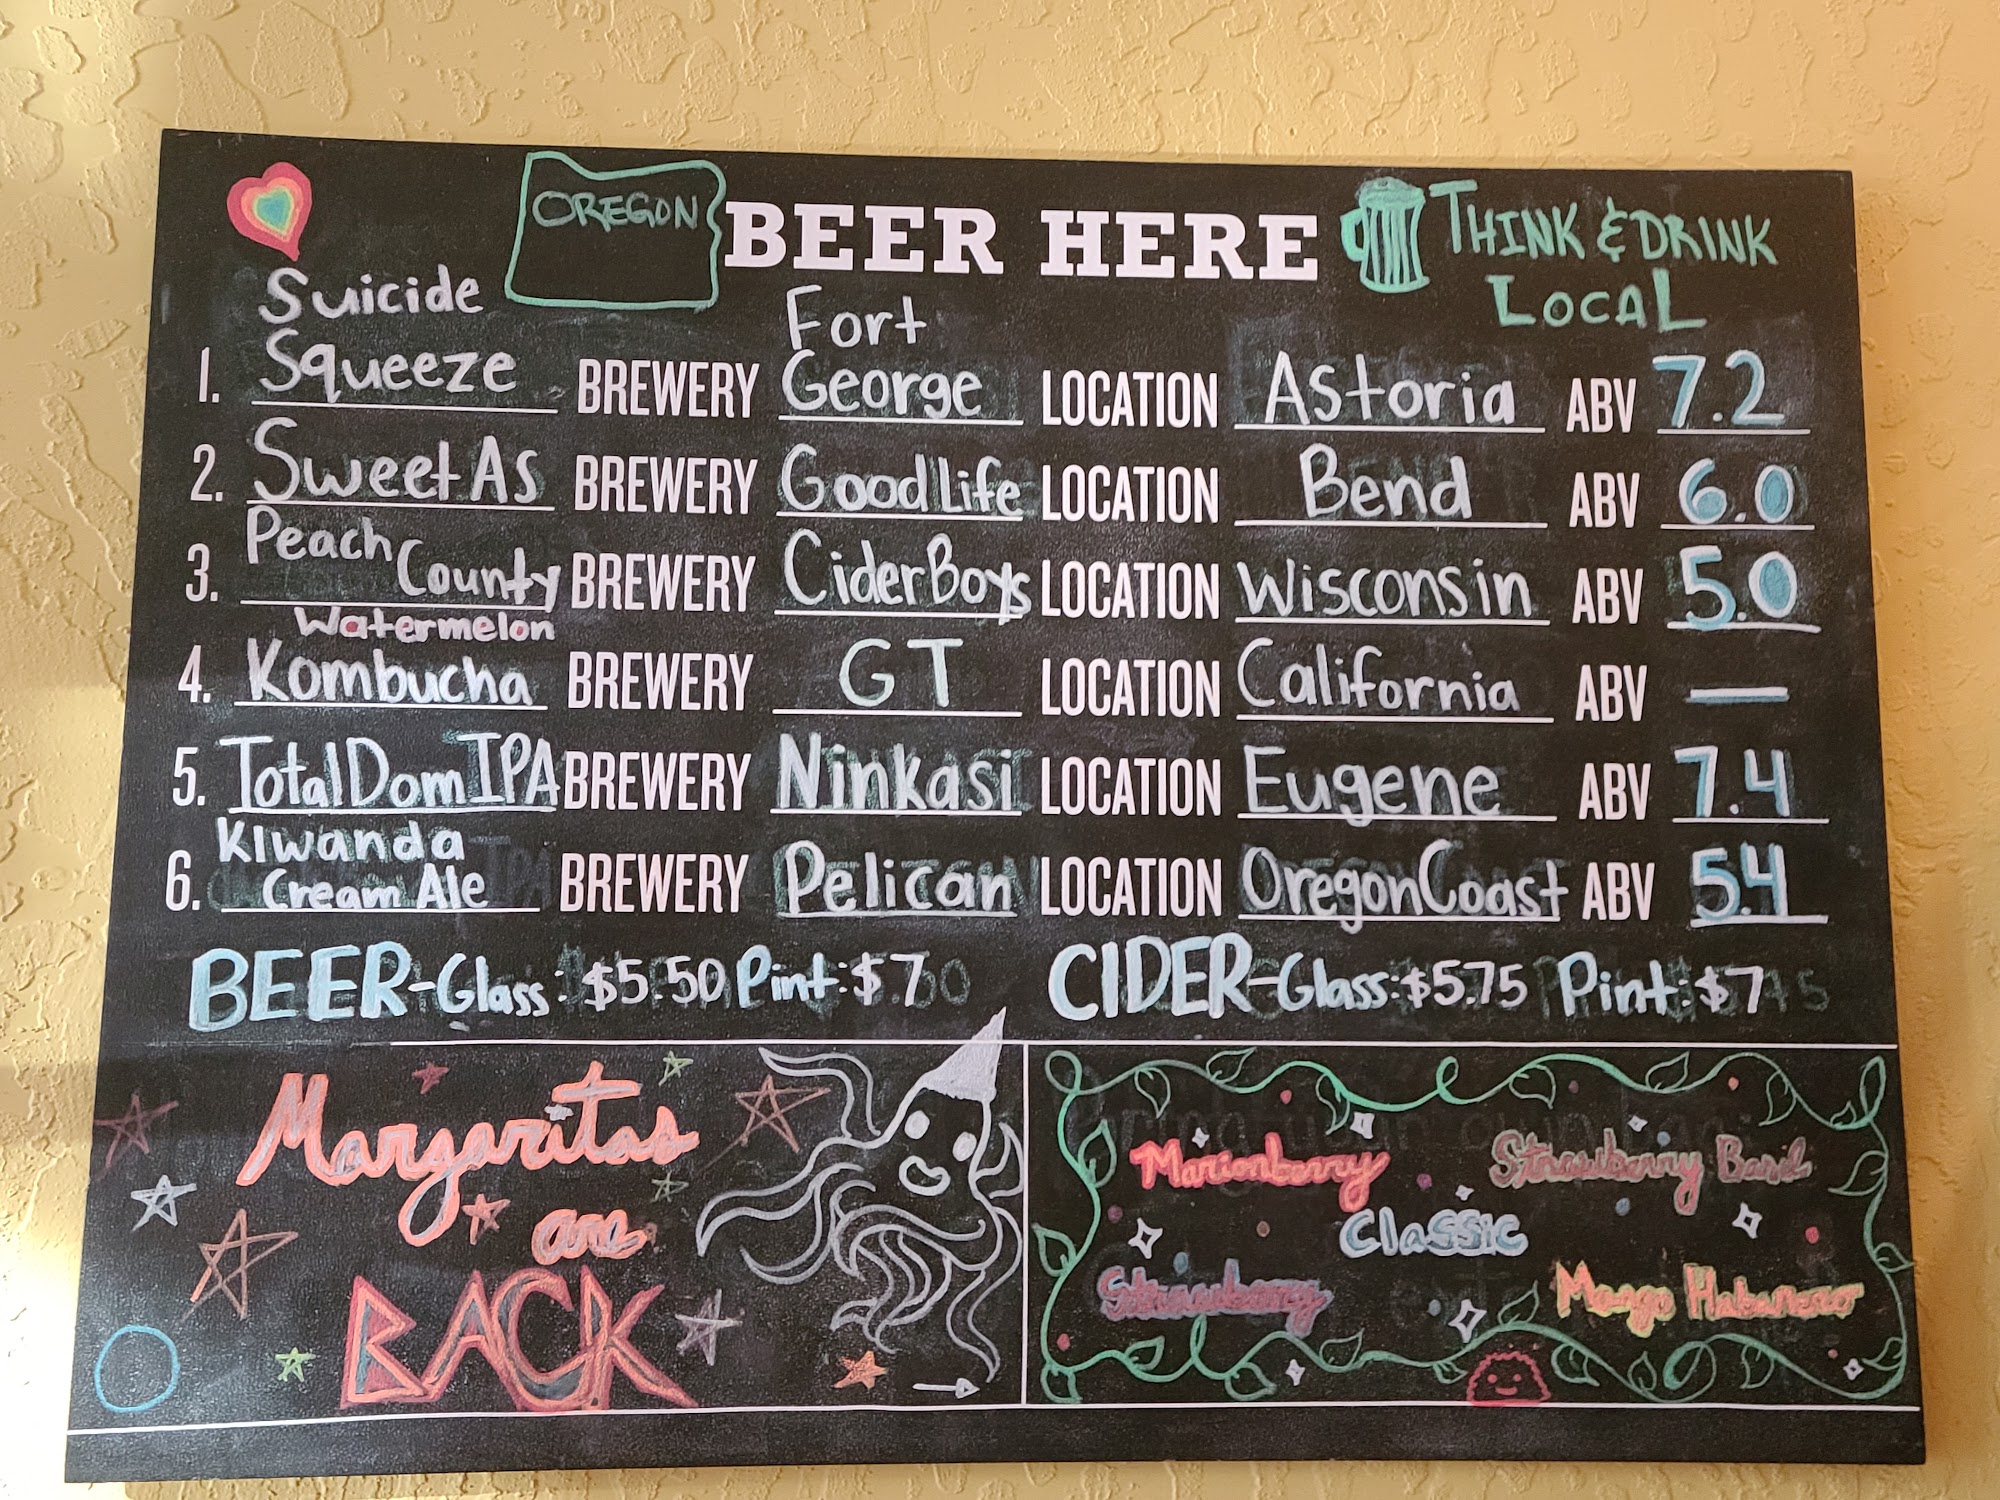 OREGON BEER HERE THINK & DRINK
LOCAL
Suicide Fort
1. Squeeze BREWERY George LOCATION Astoria ABV 7.2
2. Sweet As BREWERY GoodLife LOCATION Bend ABV 6.0
Peach
3. County BREWERY CiderBoys LOCATION Wisconsin ABV 5.0
Watermelon
4. Kombucha BREWERY GT LOCATION California ABV —
5. Total Dom IPA BREWERY Ninkasi LOCATION Eugene ABV 7.4
Kiwanda
6. Cream Ale BREWERY Pelican LOCATION Oregon Coast ABV 5.4
BEER-Glass: $5.50 Pint: $7 CIDER-Glass: $5.75 Pint: $7
Margaritas
are
BACK
Marionberry Strawberry Basil
Classic
Strawberry Mango Habanero